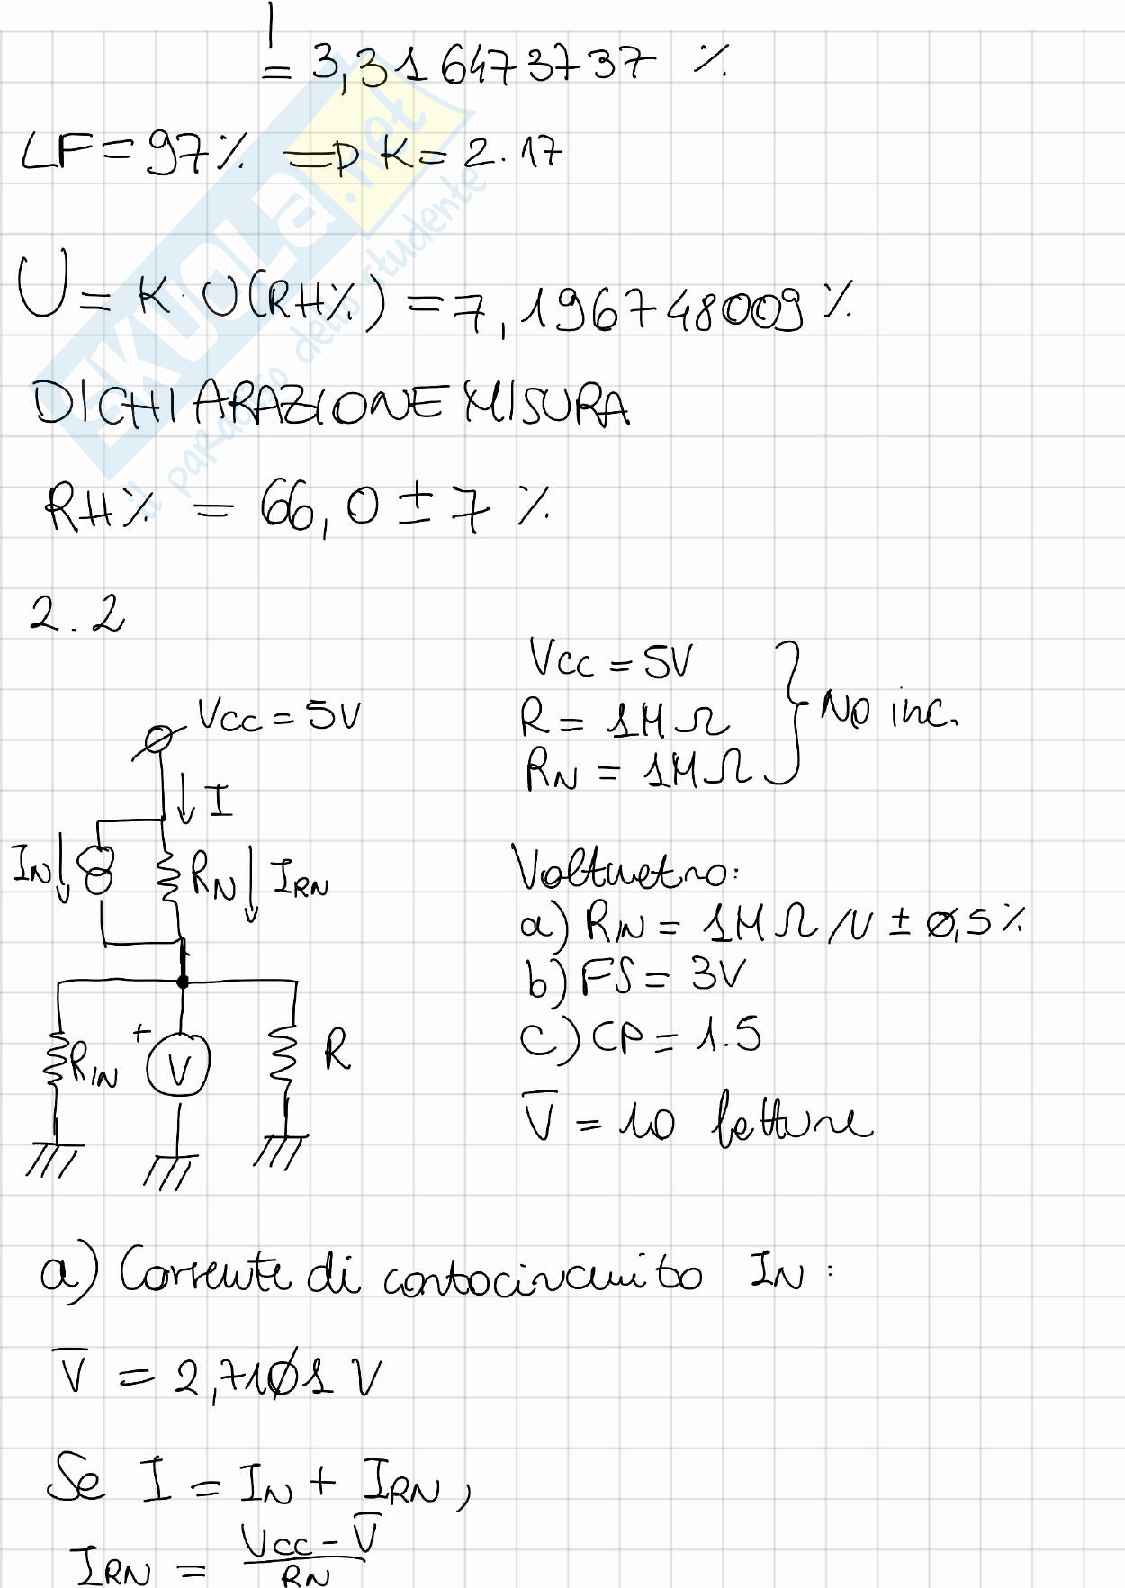 = 3,316473737 %
LF = 97% => K = 2.17
U = K · U(RH%) = 7,196748009 %
DICHIARAZIONE MISURA
RH% = 66,0 ± 7 %
2.2
Vcc = 5V
I
IN
RN
IRN
+
RIN
V
R
Vcc = 5V
R = 1MΩ
RN = 1MΩ
No inc.
Voltmetro:
a) RIN = 1MΩ/V ± 0,5%
b) FS = 3V
c) CP = 1.5
V̅ = 10 letture
a) Corrente di cortocircuito IN:
V̅ = 2,7101 V
Se I = IN + IRN,
IRN = Vcc - V̅ / RN
SKUOLA.net
il paradiso dello studente